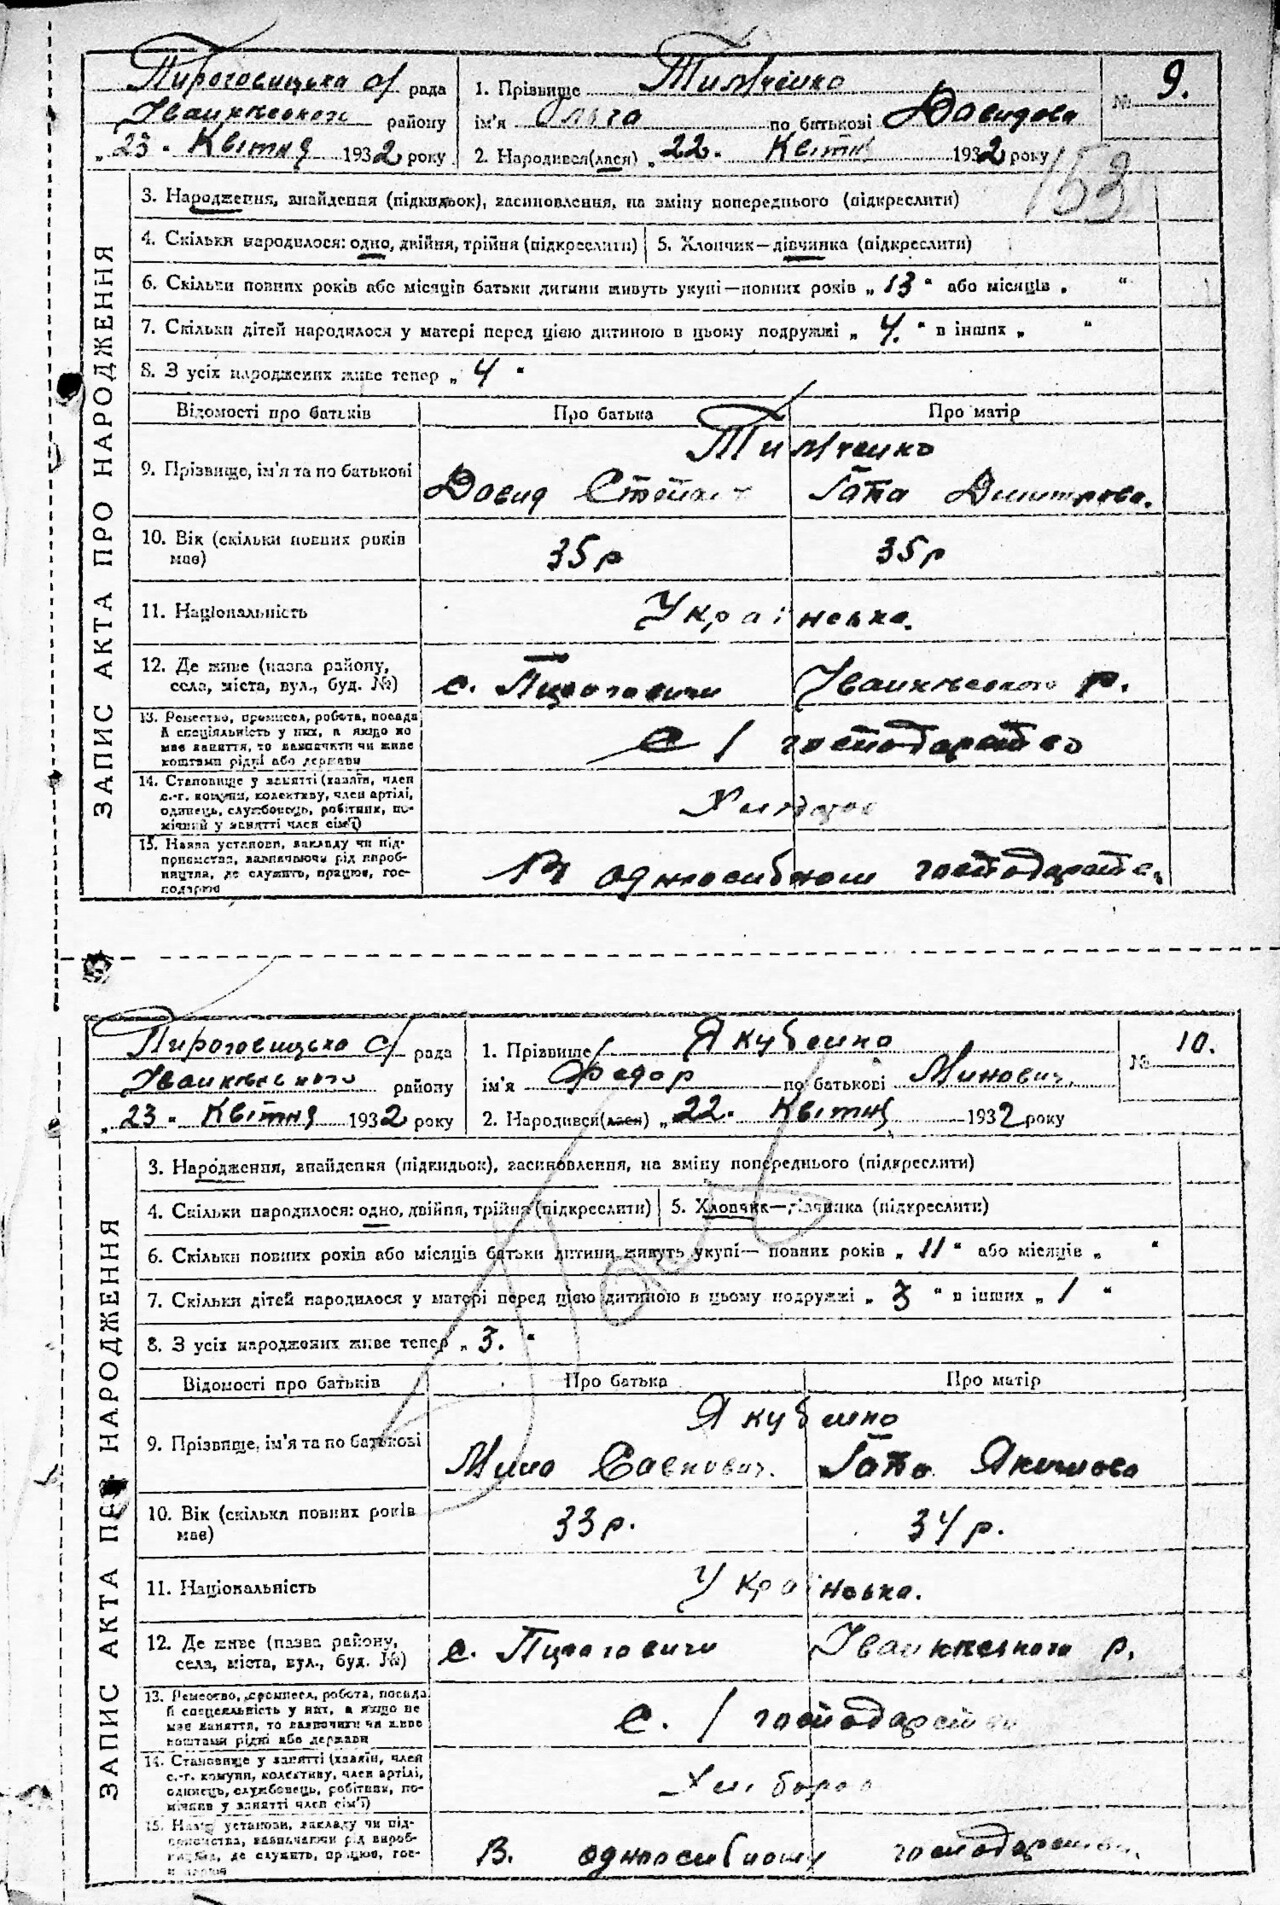 Пироговицька с/ рада
Іванківського району
„ 23 “ Квітня 1932 року
1. Прізвище Тимченко
ім'я Ольга по батькові Давидова
2. Народився(лася) „ 22 “ Квітня 1932 року
№ 9.
153
ЗАПИС АКТА ПРО НАРОДЖЕННЯ
3. Народження, знайдення (підкидьок), засиновлення, на зміну попереднього (підкреслити)
4. Скільки народилося: одно, двійня, трійня (підкреслити) 5. Хлопчик—дівчинка (підкреслити)
6. Скільки повних років або місяців батьки дитини живуть укупі—повних років „ 13 “ або місяців „ “
7. Скільки дітей народилося у матері перед цією дитиною в цьому подружжі „ 4. “ в інших „ “
8. З усіх народжених живе тепер „ 4 “
Відомості про батьків Про батька Про матір
Тимченко
9. Прізвище, ім'я та по батькові Давид Гапа Дмитрова.
10. Вік (скільки повних років 35 р 35 р
має)
11. Національність Українська.
12. Де живе (назва району, с. Пироговичи Іванківського р.
села, міста, вул., буд. №)
13. Ремество, промисел, робота, посада
й спеціяльність у них, а якщо не
має заняття, то зазначити чи живе
коштами рідні або держави
с / господарство
14. Становище у занятті (хазяїн, член
с.-г. комуни, колективу, член артілі,
одинець, службовець, робітник, по-
мічний у занятті член сім'ї)
15. Назва установи, закладу чи під-
приємства, зазначаючи рід вироб-
ництва, де служить, працює, гос-
подарює
В одноосибном господарстве.
Пироговицька с/ рада
Іванківського району
„ 23 “ Квітня 1932 року
1. Прізвище Якубенко
ім'я Федор по батькові Минович.
2. Народився(лася) „ 22 “ Квітня 1932 року
№ 10.
ЗАПИС АКТА ПРО НАРОДЖЕННЯ
3. Народження, знайдення (підкидьок), засиновлення, на зміну попереднього (підкреслити)
4. Скільки народилося: одно, двійня, трійня (підкреслити) 5. Хлопчик—дівчинка (підкреслити)
6. Скільки повних років або місяців батьки дитини живуть укупі— повних років „ 11 “ або місяців „ “
7. Скільки дітей народилося у матері перед цією дитиною в цьому подружжі „ 3 “ в інших „ 1 “
8. З усіх народжених живе тепер „ 3. “
Відомості про батьків Про батька Про матір
Якубенко
9. Прізвище, ім'я та по батькові Мина Савкович. Гапа Якимова
10. Вік (скільки повних років 33 р. 34 р.
має)
11. Національність Українська.
12. Де живе (назва району, с. Пироговичи Іванківського р.
села, міста, вул., буд. №)
13. Ремество, промисел, робота, посада
й спеціяльність у них, а якщо не
має заняття, то зазначити чи живе
коштами рідні або держави
с. / господарство
14. Становище у занятті (хазяїн, член
с.-г. комуни, колективу, член артілі,
одинець, службовець, робітник, по-
мічний у занятті член сім'ї)
15. Назва установи, закладу чи під-
приємства, зазначаючи рід вироб-
ництва, де служить, працює, гос-
подарює
В. одноосибному